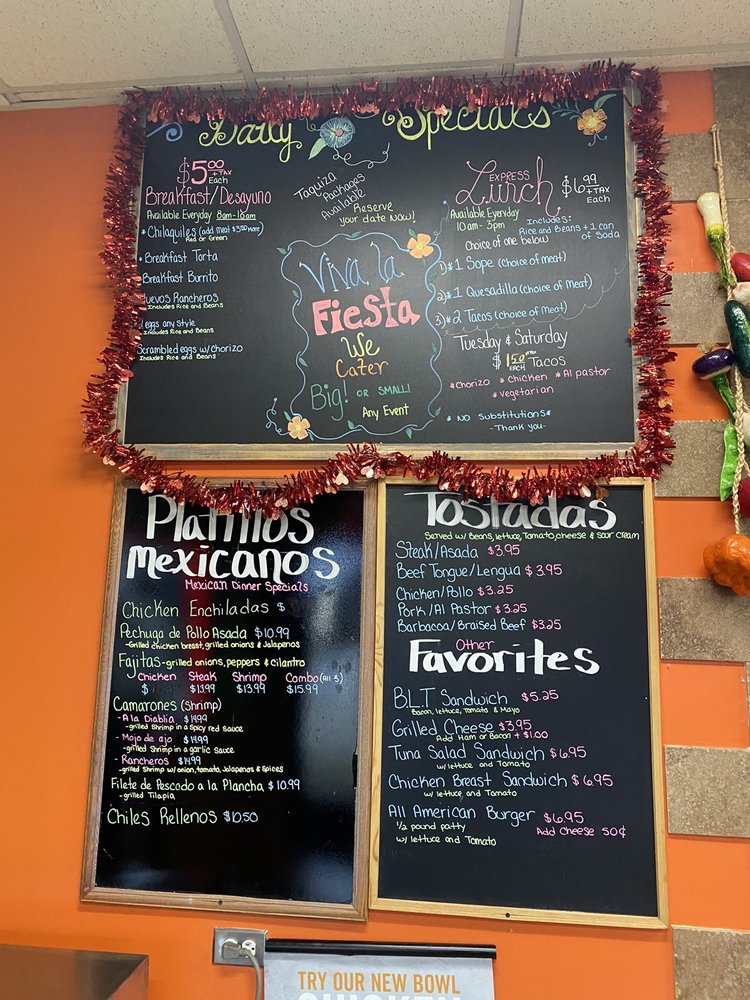 Daily Specials
$5.00 +TAX Each
Breakfast/Desayuno
Available Everyday 8am-10am
*Chilaquiles (add meat $3.00 more)
Red or Green
Breakfast Torta
Breakfast Burrito
uevos Rancheros
Includes Rice and Beans
eggs any style
Includes Rice and Beans
Scrambled eggs w/ Chorizo
Includes Rice and Beans
Taquiza
Packages
Available
Reserve
your date Now!
Viva la
Fiesta
We
Cater
Big! OR SMALL!
Any Event
EXPRESS
Lunch $6.99 +TAX Each
Available Everyday
10am-3pm
Includes:
Rice and Beans + 1 can
of Soda
Choice of one below
1)* 1 Sope (choice of meat)
2)* 1 Quesadilla (choice of meat)
3)* 2 Tacos (choice of meat)
Tuesday & Saturday
$1.50 EACH Tacos
*Chorizo * Chicken * Al pastor
* vegetarian
* NO Substitutions*
-Thank you-
Platillos
Mexicanos
Mexican Dinner Specials
Chicken Enchiladas $
Pechuga de Pollo Asada $10.99
-Grilled chicken breast, grilled onions & Jalapenos
Fajitas-grilled onions, peppers & cilantro
Chicken Steak Shrimp Combo (All 3)
$ $13.99 $13.99 $15.99
Camarones (Shrimp)
- A la Diabla $14.99
-grilled Shrimp in a Spicy red sauce
- Mojo de ajo $14.99
-grilled Shrimp in a garlic sauce
- Rancheros $14.99
-grilled Shrimp w/ onion, tomato, Jalapenos & Spices
Filete de Pescado a la Plancha $10.99
-grilled Tilapia
Chiles Rellenos $10.50
Tostadas
Served w/ Beans, lettuce, Tomato, cheese & sour cream
Steak/Asada $3.95
Beef Tongue/Lengua $3.95
Chicken/Pollo $3.25
Pork/Al Pastor $3.25
Barbacoa/Braised Beef $3.25
Other
Favorites
BLT Sandwich $5.25
Bacon, lettuce, Tomato & Mayo
Grilled Cheese $3.95
Add Ham or Bacon + $1.00
Tuna Salad Sandwich $6.95
w/ lettuce and Tomato
Chicken Breast Sandwich $6.95
w/ lettuce and Tomato
All American Burger $6.95
1/2 pound patty
Add Cheese 50¢
w/ lettuce and Tomato
TRY OUR NEW BOWL
CHICKEN